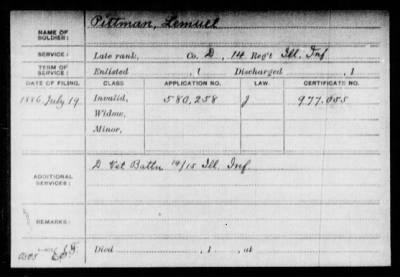 NAME OF SOLDIER: Pittman, Lemuel
SERVICE: Late rank, Co. D, 14 Reg't Ill. Inf
TERM OF SERVICE: Enlisted , 1 Discharged , 1
DATE OF FILING. CLASS APPLICATION NO. LAW. CERTIFICATE NO.
1886, July 19 Invalid, 580,258 J 977,055
Widow,
Minor,
ADDITIONAL SERVICES: D Vet Battn 14/15 Ill. Inf
REMARKS:
Died , 1 , at